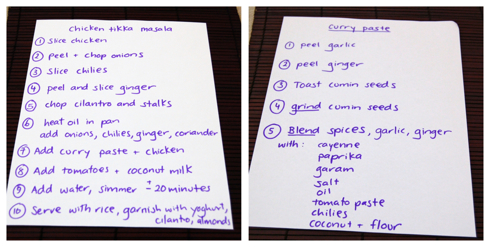 Chicken tikka masala
① Slice chicken
② peel + chop onions
③ Slice chilies
④ peel and slice ginger
⑤ chop cilantro and stalks
⑥ heat oil in pan
add onions, chilies, ginger, coriander
⑦ Add curry paste + chicken
⑧ Add tomatoes + coconut milk
⑨ Add water, simmer +- 20 minutes
⑩ Serve with rice, garnish with yoghurt,
cilantro, almonds
Curry paste
① peel garlic
② peel ginger
③ Toast cumin seeds
④ grind cumin seeds
⑤ Blend spices, garlic, ginger
with: cayenne
paprika
garam
salt
oil
tomato paste
chilies
coconut + flour